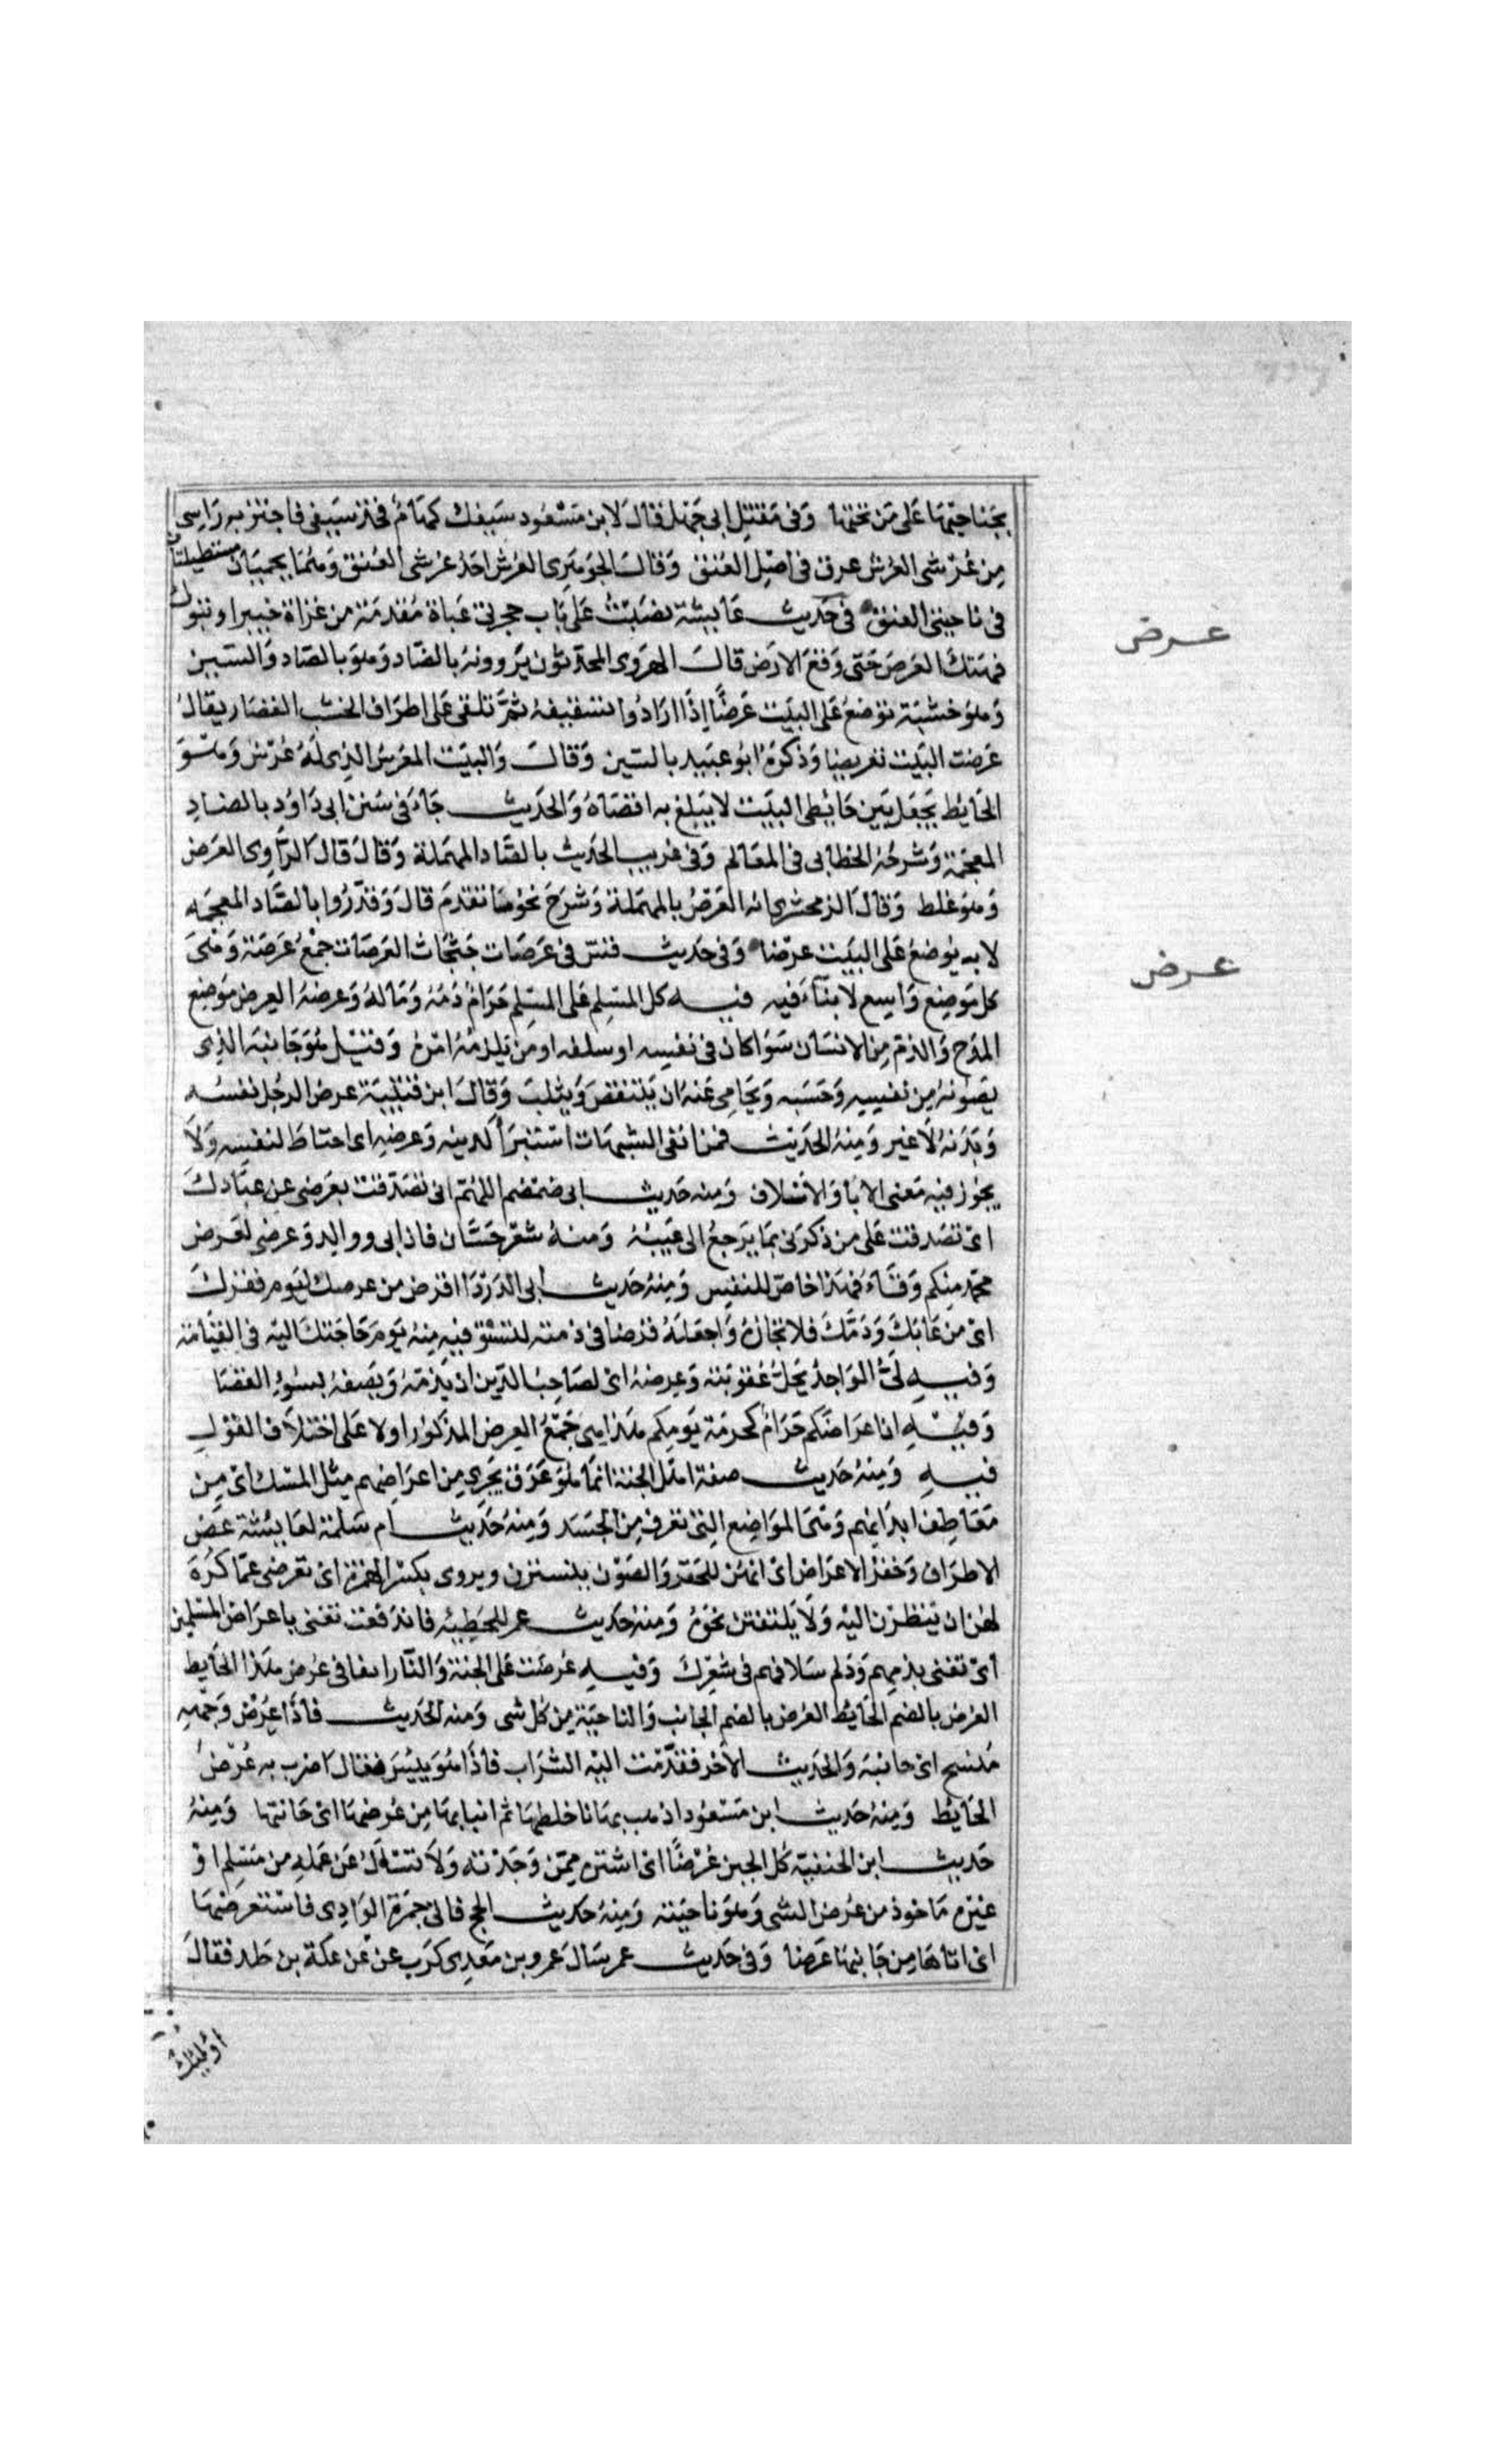 بجناحيها على من تحتها وفى مقتل ابى جهل فقال لابن مسعود سيفك كهام فخذ سيفى فاجتز به راسى
من عرشى العرش عرق فى اصل العنق وقال الجوهرى العرش احد عرشى العنق وهما لحمتان مستطيلتان
فى ناحيتى العنق فى حديث عايشة نصبت على باب حجرتى عباة مقدمة من غزاة خيبر او تبوك
فهتك العرص حتى وقع الارض قال الهروى المحدثون يروونه بالضاد وهو بالصاد والسين
وهو خشبة توضع على البيت عرضًا اذا ارادوا تسقيفه ثم تلقى على اطراف الخشب القصار يقال
عرصت البيت تعريصا وذكره ابو عبيد بالسين وقال والبيت المعرس الذى له عرس وهو
الحايط يجعل بين حايطى البيت لا يبلغ به اقصاه والحديث جاء فى سنن ابى داود بالضاد
المعجمة وشرحه الخطابى فى المعالم وفى غريب الحديث بالصاد المهملة وقال قال الراوى العرض
وهو غلط وقال الزمخشرى انه العرص بالمهملة وشرح نحو ما تقدم قال وقد روا بالضاد المعجمه
لانه يوضع على البيت عرضا وفى حديث قس فى عرصات جثجاث العرصات جمع عرصة وهى
كل موضع واسع لا بناء فيه فيه كل المسلم على المسلم حرام دمه وماله وعرضه العرض موضع
المدح والذم من الانسان سوا كان فى نفسه او سلفه او من يلزمه امره وقيل هو جانبه الذى
يصونه من نفسه وحسبه ويحامى عنه ان ينتقص ويثلب وقال ابن قتيبة عرض الرجل نفسه
وبدنه لا غير ومنه الحديث فمن اتقى الشبهات استبرا لدينه وعرضه اى احتاط لنفسه ولا
يجوز فيه معنى الابا والاسلاف ومنه حديث ابى ضمضم اللهم انى تصدقت بعرضى عن عبادك
اى تصدقت على من ذكرنى بما يرجع الى عيبه ومنه شعر حسان فان ابى ووالده وعرضى لعرض
محمد منكم وقاء فهذا خاص للنفس ومنه حديث ابى الدردا اقرض من عرضك ليوم فقرك
اى من عابك وذمك فلا تجازه واجعله قرضا فى ذمته لتستوفيه منه يوم حاجتك اليه فى القيامة
وفيه لى الواجد يحل عقوبته وعرضه اى لصاحب الدين ان يذمه ويصفه بسوء القضا
وفيه ان اعراضكم حرام كحرمة يومكم هذا هى جمع العرض المذكور اولا على اختلاف القول
فيه ومنه حديث صفة اهل الجنة انما هو عرق يجرى من اعراضهم مثل المسك اى من
معاطف ابدانهم وهى المواضع التى تعرق من الجسد ومنه حديث ام سلمة لعايشة غض
الاطراف وخفر الاعراض اى انهن للخفر والصون يتسترن ويروى بكسر الهمزة اى تعرض عما كره
لهن ان ينظرن اليه ولا يلتفتن نحوه ومنه حديث عمر للحطيئه فاندفعت تغنى باعراض المسلمين
اى تغنى بذمهم وذم سلافهم فى شعرك وفيه عرضت على الجنة والنار انفا فى عرض هذا الحايط
العرض بالضم الحايط العرض بالضم الجانب والناحية من كل شى ومنه الحديث فاذا عرض وجهه
منسح اى جانبه والحديث الاخر فقدمت اليه الشراب فاذا هو ينش فقال اضرب به عرض
الحايط ومنه حديث ابن مسعود اذهب بهذا فاخلطها ثم ائتنا بها من عرضها اى جانبها ومنه
حديث ابن الحنفية كل الجبن عرضًا اى اشتره ممن وجدته ولا تسال عن عمله من مسلم او
غيره ماخوذ من عرض الشى وهو ناحيته ومنه حديث الحج فاتى جمرة الوادى فاستعرضها
اى اتاها من جانبها عرضا وفى حديث عمر سال عمرو بن معدى كرب عن علة بن خلد فقال
اوليك
عرض
عرض